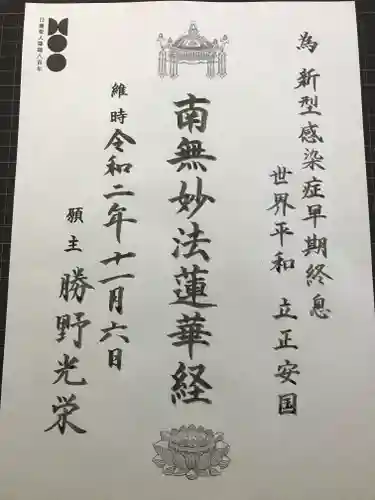 為 新型感染症早期終息
世界平和 立正安国
南無妙法蓮華経
維時 令和二年十一月六日
願主 勝野光栄
日蓮聖人降誕八百年